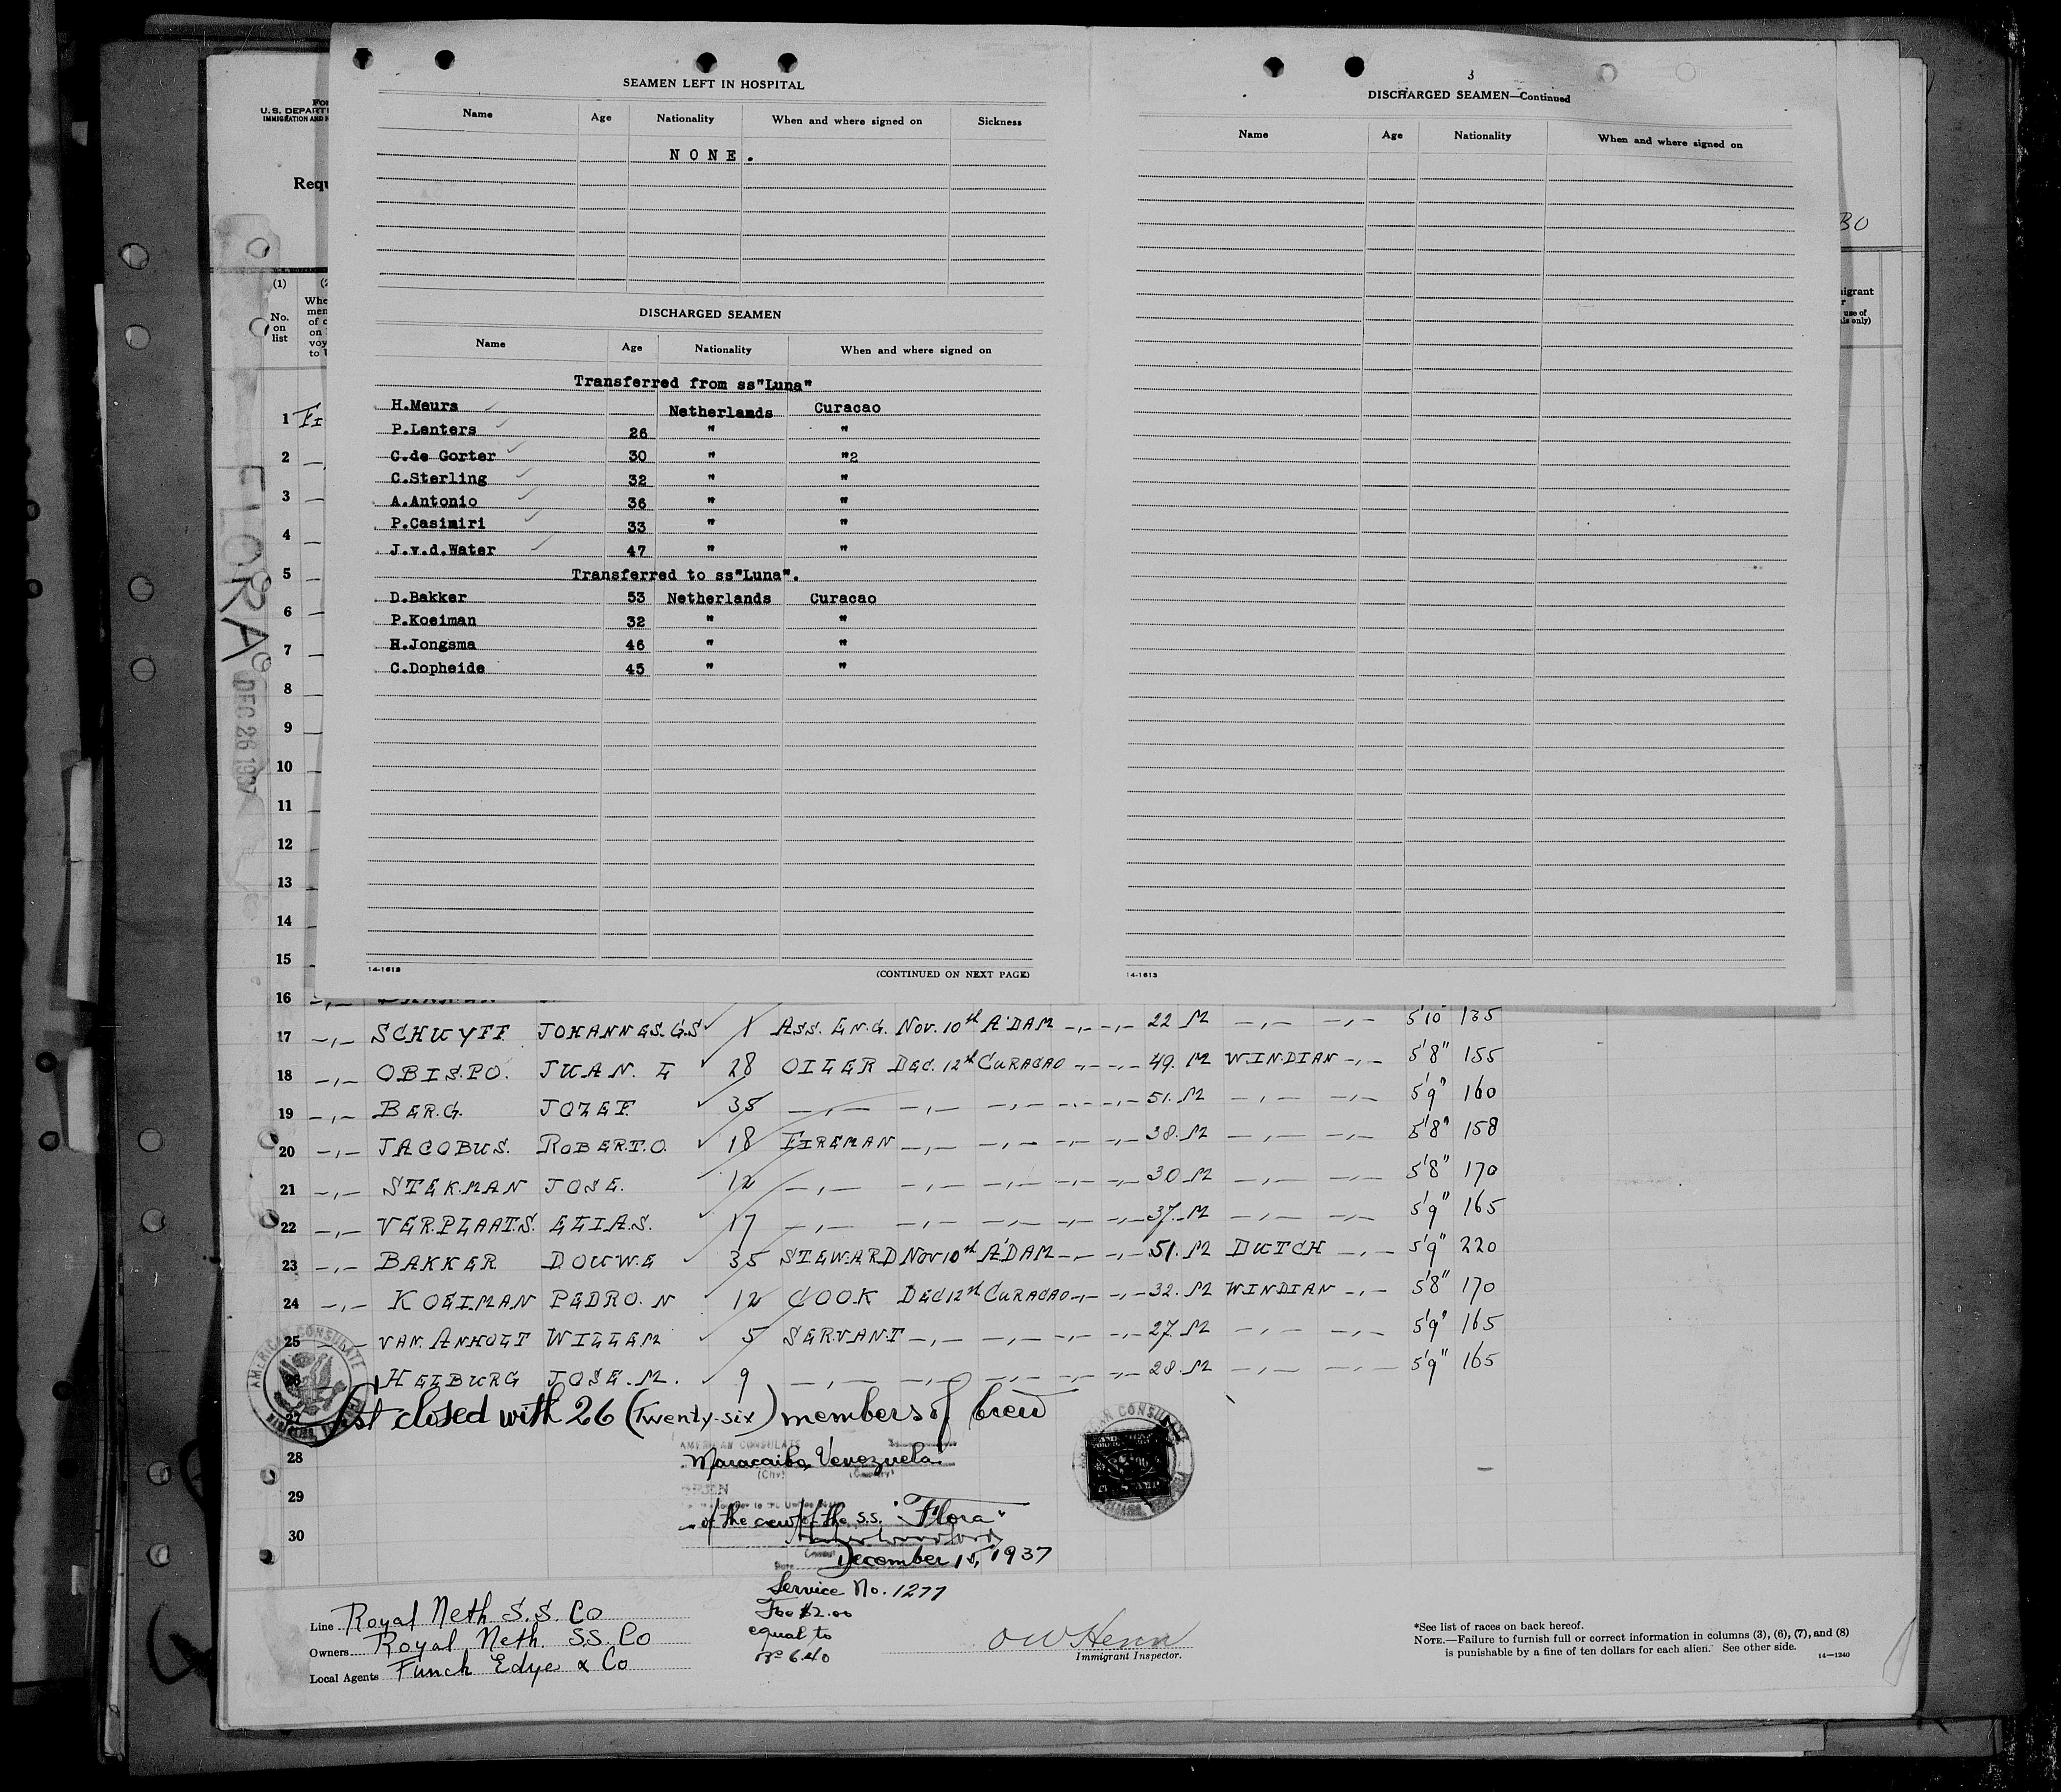 SEAMEN LEFT IN HOSPITAL
Name Age Nationality When and where signed on Sickness
NONE.
DISCHARGED SEAMEN
Name Age Nationality When and where signed on
Transferred from ss"Luna"
H.Meurs Netherlands Curacao
P.Lenters 26 " "
C.de Gorter 30 " "2
C.Sterling 32 " "
A.Antonio 36 " "
P.Casimiri 33 " "
J.v.d.Water 47 " "
Transferred to ss"Luna".
D.Bakker 53 Netherlands Curacao
P.Koeiman 32 " "
H.Jongsma 46 " "
C.Dopheide 45 " "
14-1613
(CONTINUED ON NEXT PAGE)
3
DISCHARGED SEAMEN—Continued
Name Age Nationality When and where signed on
14-1613
U.S. DEPART
IMMIGRATION AND N
Requ
BO
(1)
No. on list
FLORA
DEC 26 1937
1
2
3
4
5
6
7
8
9
10
11
12
13
14
15
16
17 -,- SCHUYFF JOHANNES.G.S 1 ASS. ENG. NOV. 10th A'DAM -,- -,- 22 M -,- -,- 5'10 135
18 -,- OBISPO. JUAN. E 28 OILER DEC. 12th CURACAO -,- -,- 49. M W.INDIAN -,- 5'8" 155
19 -,- BERG. JOZEF 38 -,- -,- -,- -,- -,- 51. M -,- -,- 5'9" 160
20 -,- JACOBUS. ROBERTO. 18 FIREMAN -,- -,- -,- -,- 38. M -,- -,- 5'8" 158
21 -,- STEKMAN JOSE. 12 -,- -,- -,- -,- -,- 30 M -,- -,- 5'8" 170
22 -,- VERPLAATS. ELIAS. 17 -,- -,- -,- -,- -,- 37. M -,- -,- 5'9" 165
23 -,- BAKKER DOUWE 35 STEWARD NOV 10th A'DAM -,- -,- 51. M DUTCH -,- 5'9" 220
24 -,- KOEIMAN PEDRO. N 12 COOK DEC 12th CURACAO -,- -,- 32. M W INDIAN -,- 5'8" 170
25 VAN. ANHOLT WILLEM 5 SERVANT -,- -,- -,- -,- 27. M -,- -,- 5'9" 165
HEIBURG JOSE. M. 9 -,- -,- -,- -,- -,- 28. M -,- -,- 5'9" 165
27 List closed with 26 (Twenty-six) members of crew
AMERICAN CONSULATE
28 Maracaibo, Venezuela
(City) (Country)
29
of the crew of the s.s. "Flora"
30
December 15, 1937
Service No. 1277
Fee $2.00
equal to
6.40
Line Royal Neth S.S. Co
Owners Royal Neth. S.S. Co
Local Agents Funch Edye & Co
Immigrant Inspector.
*See list of races on back hereof.
NOTE.—Failure to furnish full or correct information in columns (3), (6), (7), and (8)
is punishable by a fine of ten dollars for each alien. See other side.
14—1240